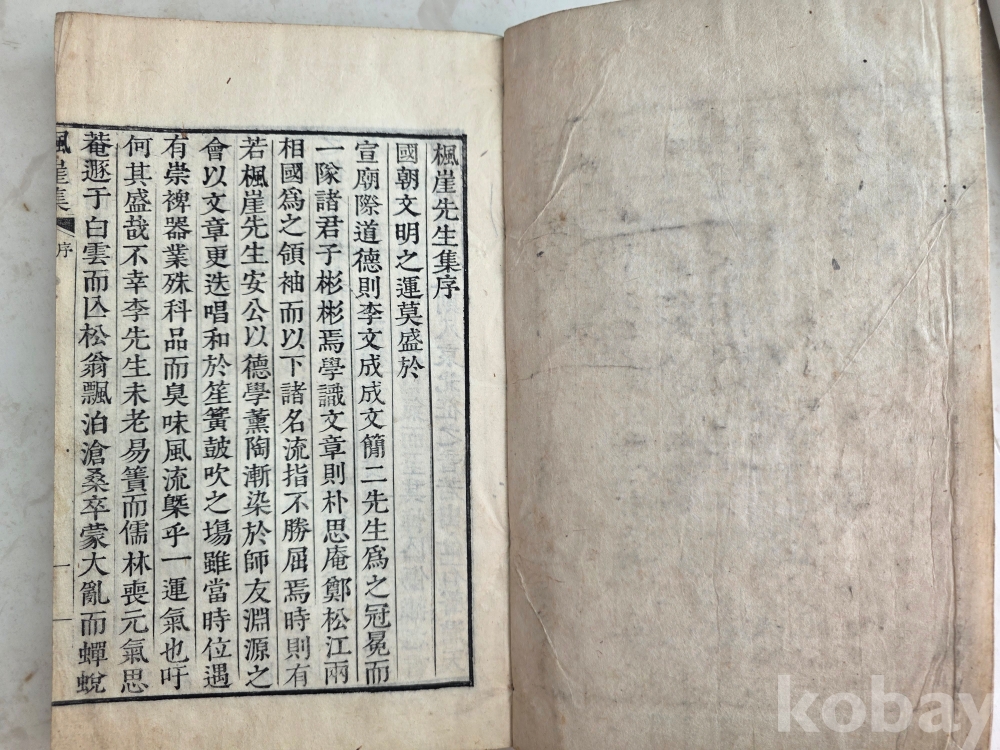 楓崖先生集序
國朝文明之運莫盛於
宣廟際道德則李文成成文簡二先生爲之冠冕而
一隊諸君子彬彬焉學識文章則朴思庵鄭松江兩
相國爲之領袖而以下諸名流指不勝屈焉時則有
若楓崖先生安公以德學薰陶漸染於師友淵源之
會以文章更迭唱和於笙簧皷吹之場雖當時位遇
有崇裨器業殊科品而臭味風流槩乎一運氣也吁
何其盛哉不幸李先生未老易簀而儒林喪元氣思
菴遯于白雲而亾松翁飄泊滄桑卒蒙大亂而蟬蛻
楓崖集
序
一
kobay